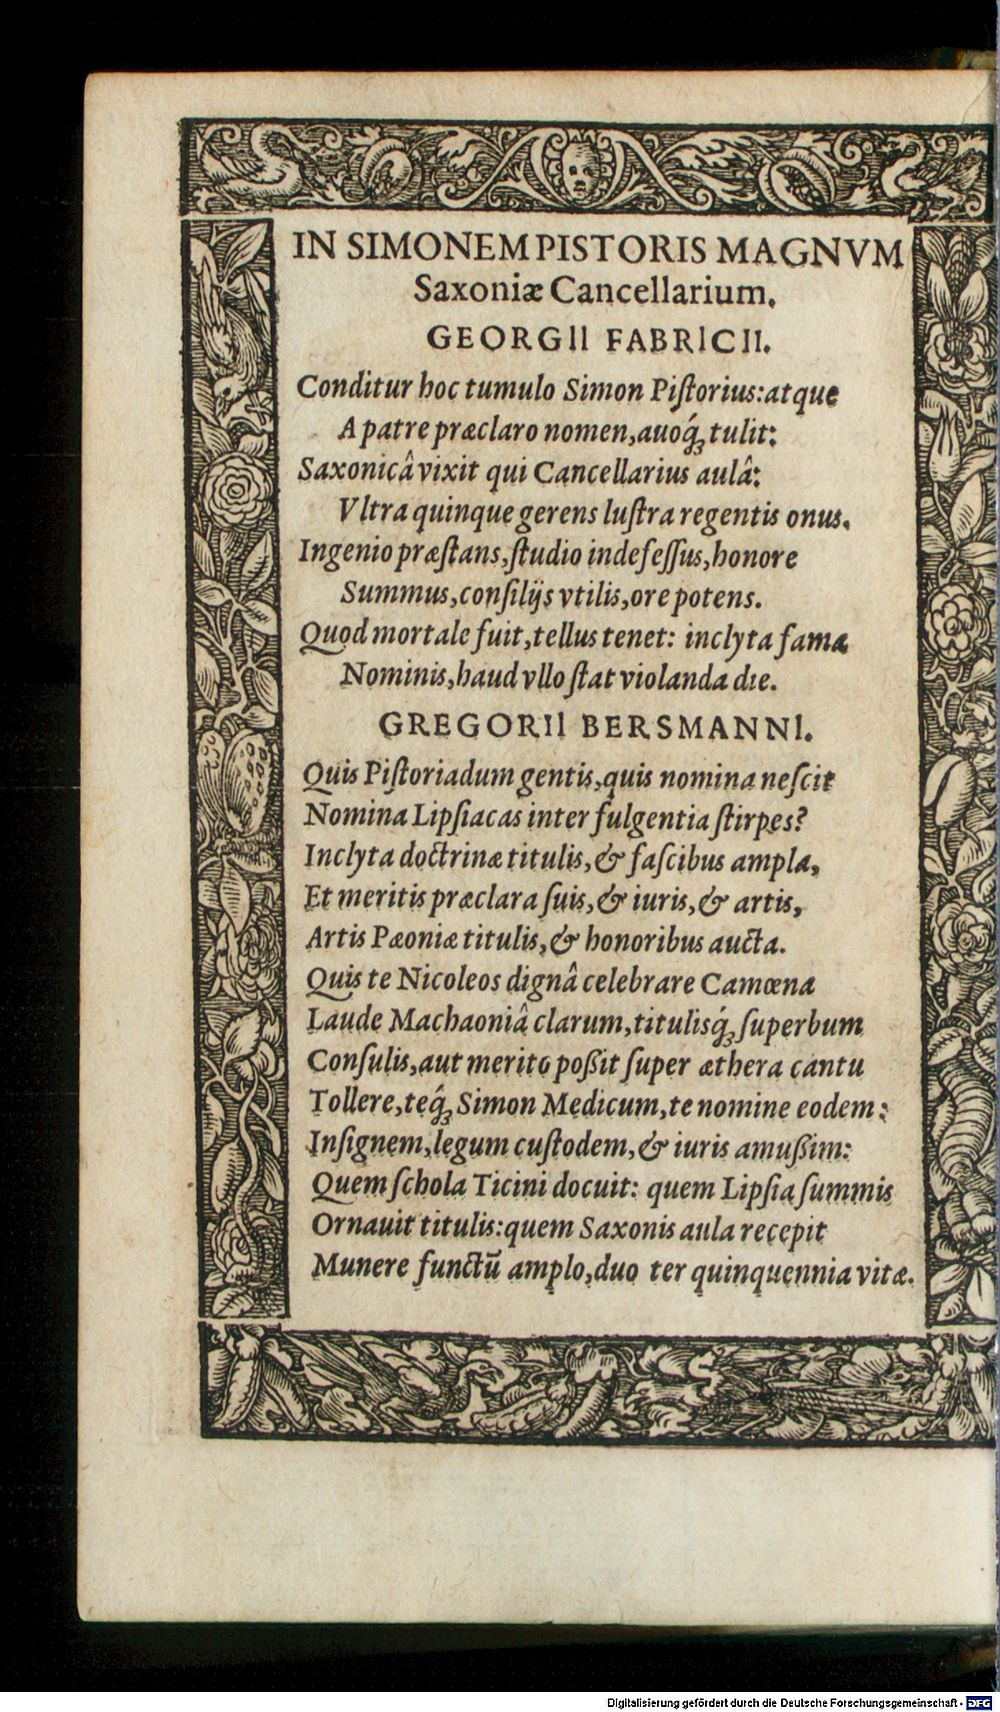 IN SIMONEM PISTORIS MAGNVM
Saxoniæ Cancellarium.
GEORGII FABRICII.
Conditur hoc tumulo Simon Piſtorius: atque
A patre præclaro nomen, auoq́; tulit:
Saxonicâ vixit qui Cancellarius aulâ:
Vltra quinque gerens luſtra regentis onus.
Ingenio præſtans, ſtudio indefeſſus, honore
Summus, conſilijs vtilis, ore potens.
Quod mortale fuit, tellus tenet: inclyta fama
Nominis, haud vllo ſtat violanda die.
GREGORII BERSMANNI.
Quis Piſtoriadum gentis, quis nomina neſcit
Nomina Lipſiacas inter fulgentia ſtirpes?
Inclyta doctrinæ titulis, & faſcibus ampla,
Et meritis præclara ſuis, & iuris, & artis,
Artis Pæoniæ titulis, & honoribus aucta.
Quis te Nicoleos dignâ celebrare Camœna
Laude Machaoniâ clarum, titulisq́; ſuperbum
Conſulis, aut merito poßit ſuper æthera cantu
Tollere, teq́; Simon Medicum, te nomine eodem:
Inſignem, legum cuſtodem, & iuris amußim:
Quem ſchola Ticini docuit: quem Lipſia ſummis
Ornauit titulis: quem Saxonis aula recepit
Munere functū amplo, duo ter quinquennia vitæ.
Digitalisierung gefördert durch die Deutsche Forschungsgemeinschaft - DFG